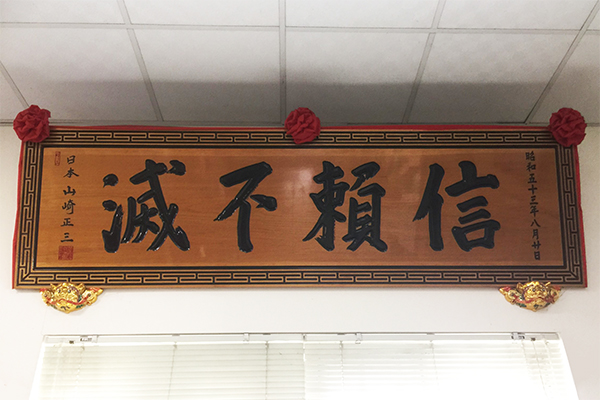 昭和五十三年八月廿日
信頼不滅
日本 山崎正三